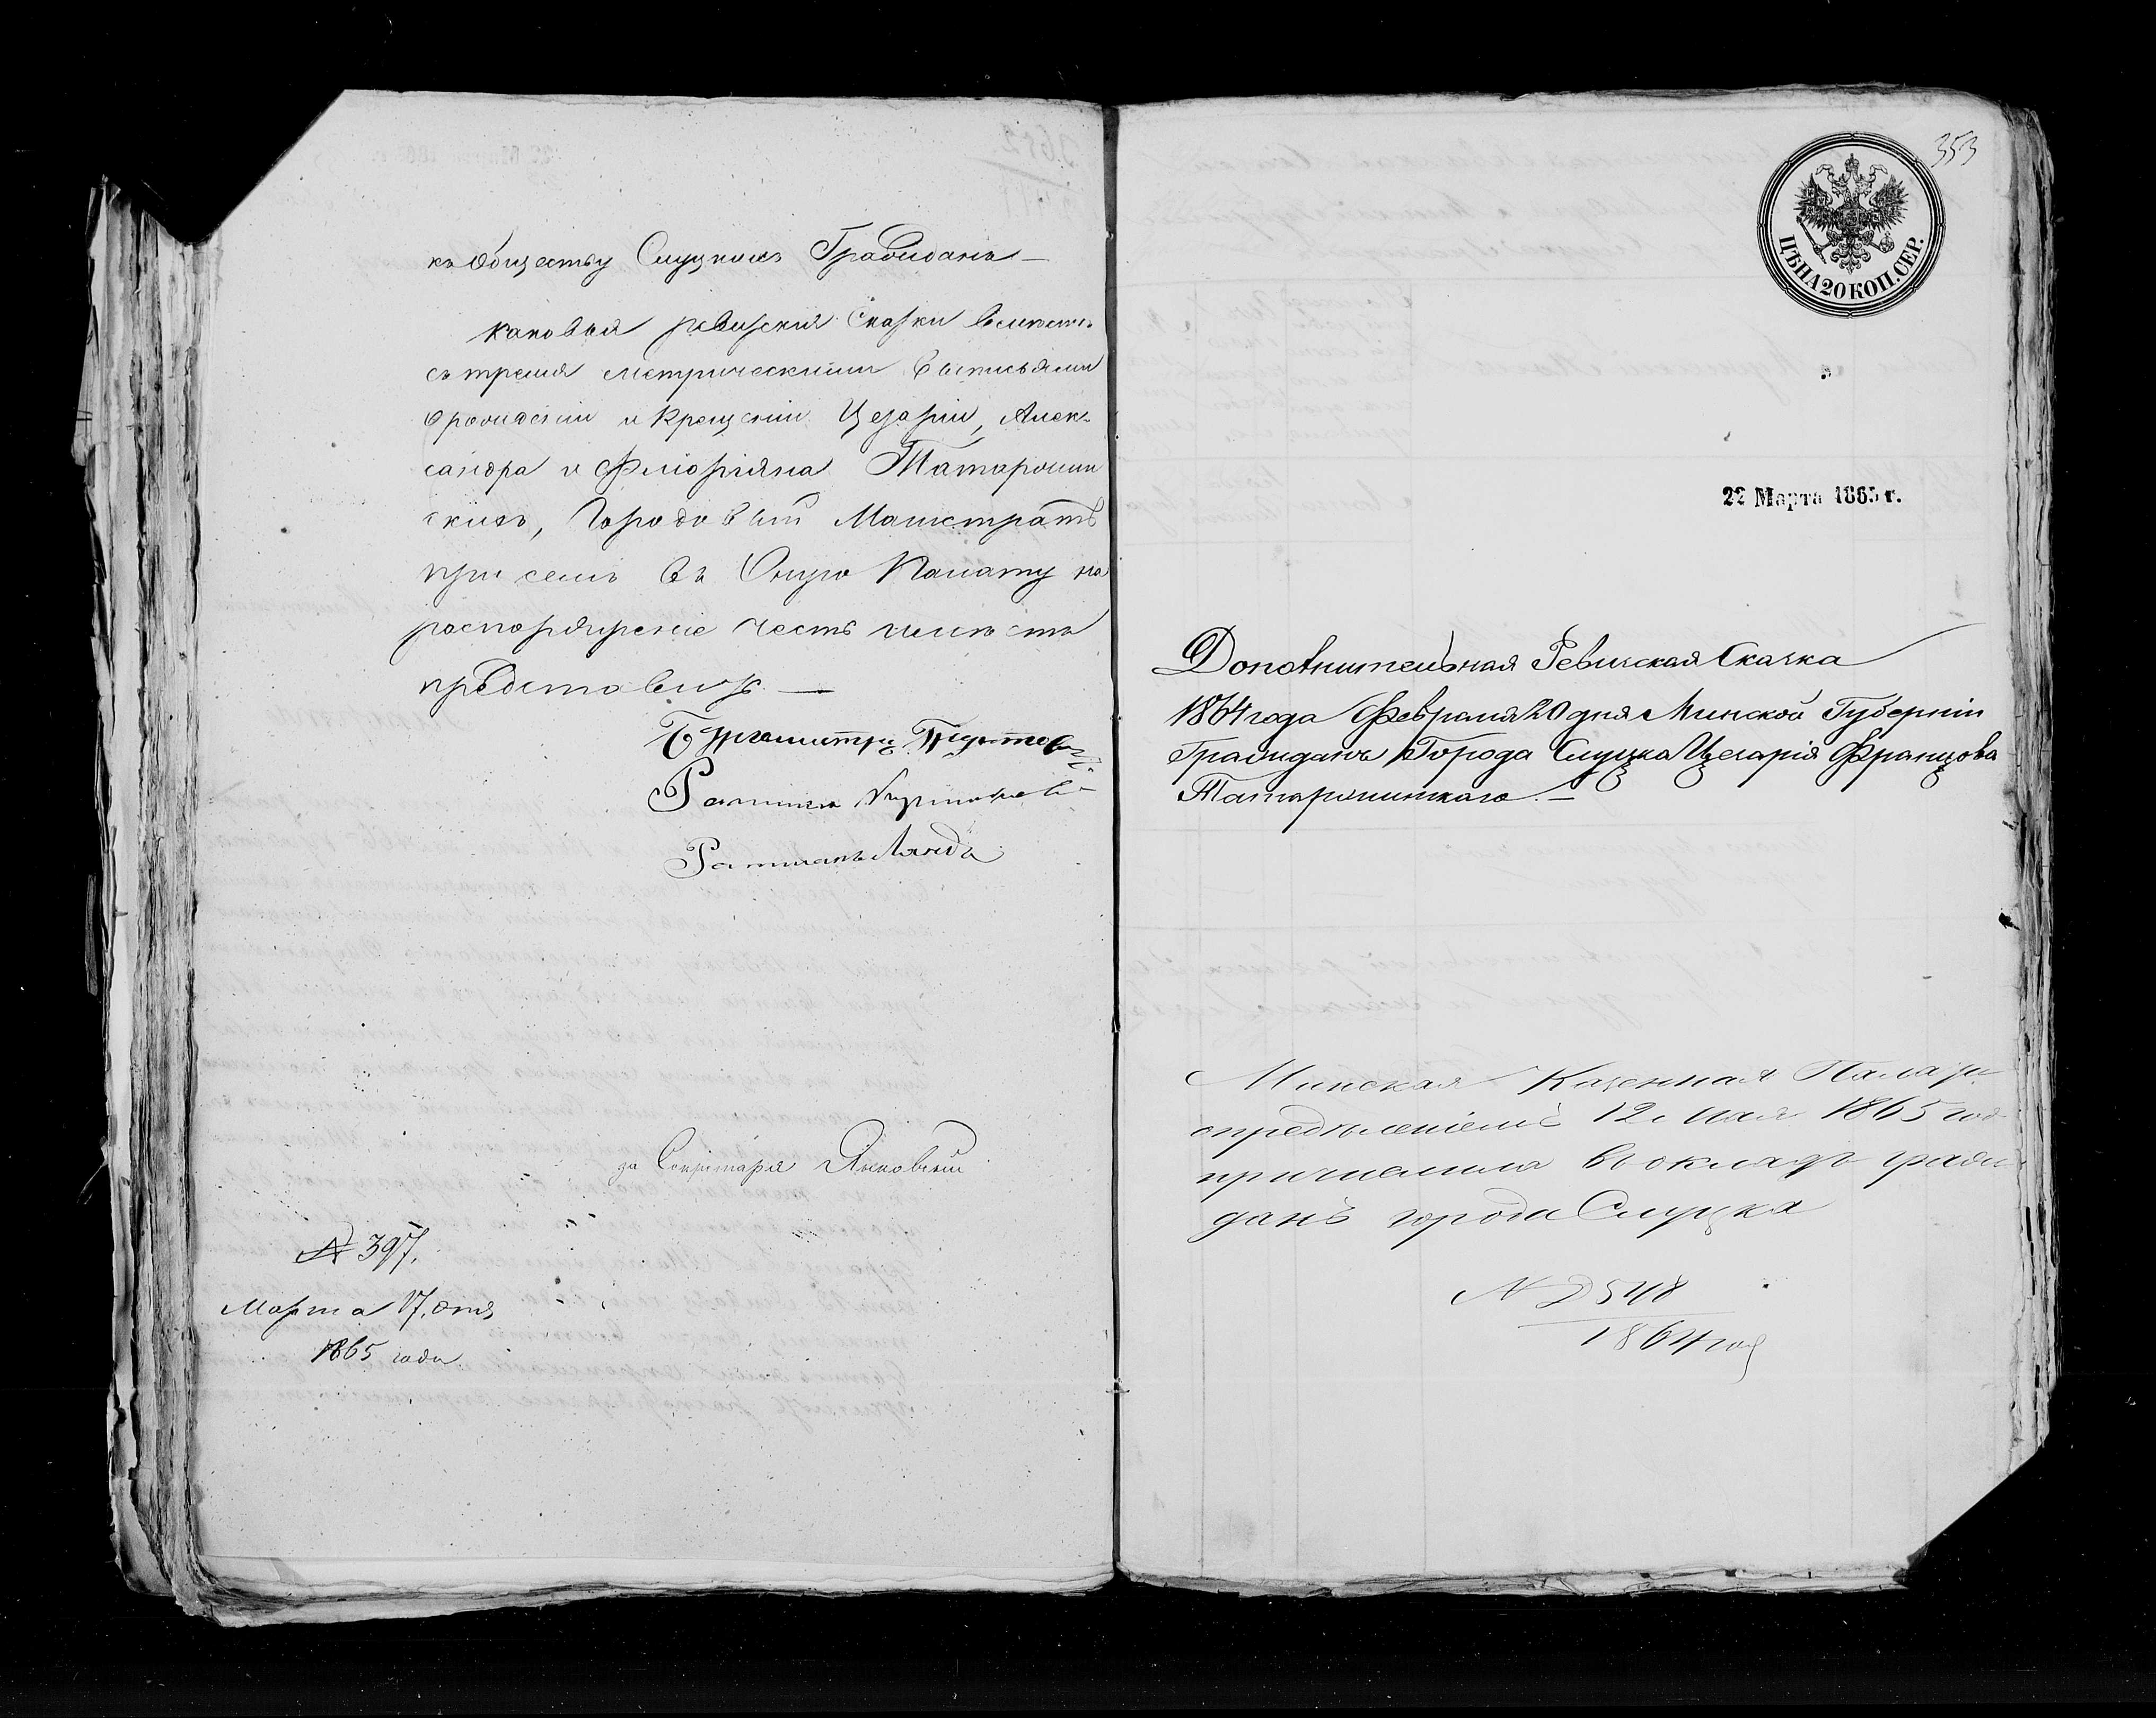 къ обществу Слуцкихъ Гражданъ —
каковыя ревизскія сказки вместе
съ тремя метрическими выписьями
о рожденіи и крещеніи Цезарія, Алек-
сандра и Флоріяна Татаржин
скихъ, Городовый Магистратъ
при семъ въ Оную Палату на
распоряженіе честь имеетъ
представить. —
Бургомистръ
Ратманъ
Ратманъ Ляндъ
за Секретаря Янковскій
№ 397.
Марта 17. дня
1865 года
353
ЦѢНА 20 КОП. СЕР.
22 Марта 1865 г.
Дополнительная Ревизская Сказка
1864 года Февраля 20 дня Минской Губерніи
Гражданъ Города Слуцка Цезарія Францова
Татаржинскаго. —
Минская Казенная Палата
определеніемъ 12 Мая 1865 год
причислила въ окладъ граж
данъ города Слуцка
№ 2548
1864 год